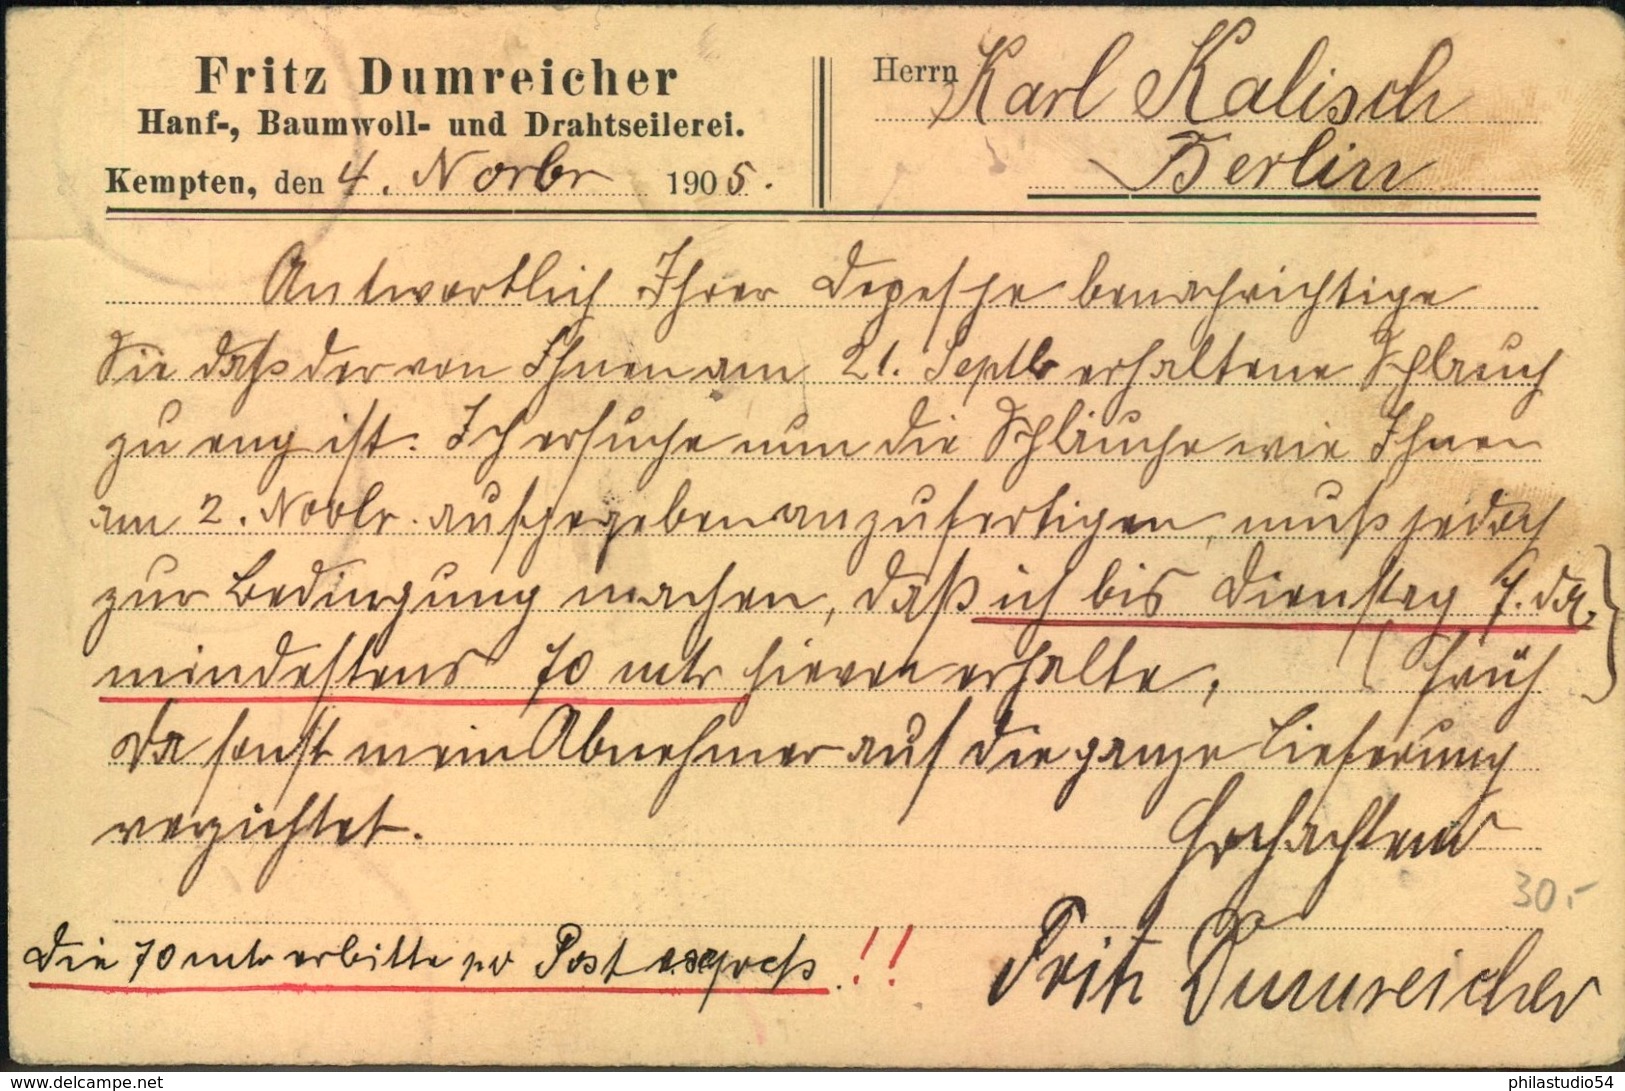 Fritz Dumreicher
Hanf-, Baumwoll- und Drahtseilerei.
Kempten, den 4. Novbr 1905.
Herrn Karl Kalisch
Berlin
Antwortlich Ihrer Depesche benachrichtige
Sie daß der von Ihnen am 21. Septbr erhaltene Schlauch
zu eng ist. Ich ersuche nun die Schläuche wie Ihnen
am 2. Novbr. aufgegeben anzufertigen, muß jedoch
zur Bedingung machen, daß ich bis Dienstag 7. ds.
mindestens 70 mtr hievon erhalte, (früh
da sonst mein Abnehmer auf die ganze Lieferung
verzichtet.
Hochachtend
30,-
Die 70 mtr erbitte pr Post expreß!!
Fritz Dumreicher
philastudio54